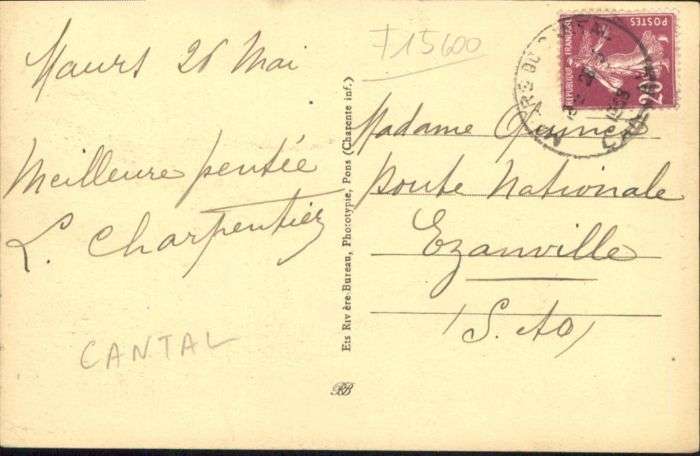 Maurs 26 Mai
Meilleure pensée
L. Charpentier
CANTAL
Ets Rivière-Bureau, Phototypie, Pons (Charente inf.)
RB
715600
POSTES
REPUBLIQUE FRANÇAISE
20c
Madame
Route Nationale
Ezanville
(S. &O)